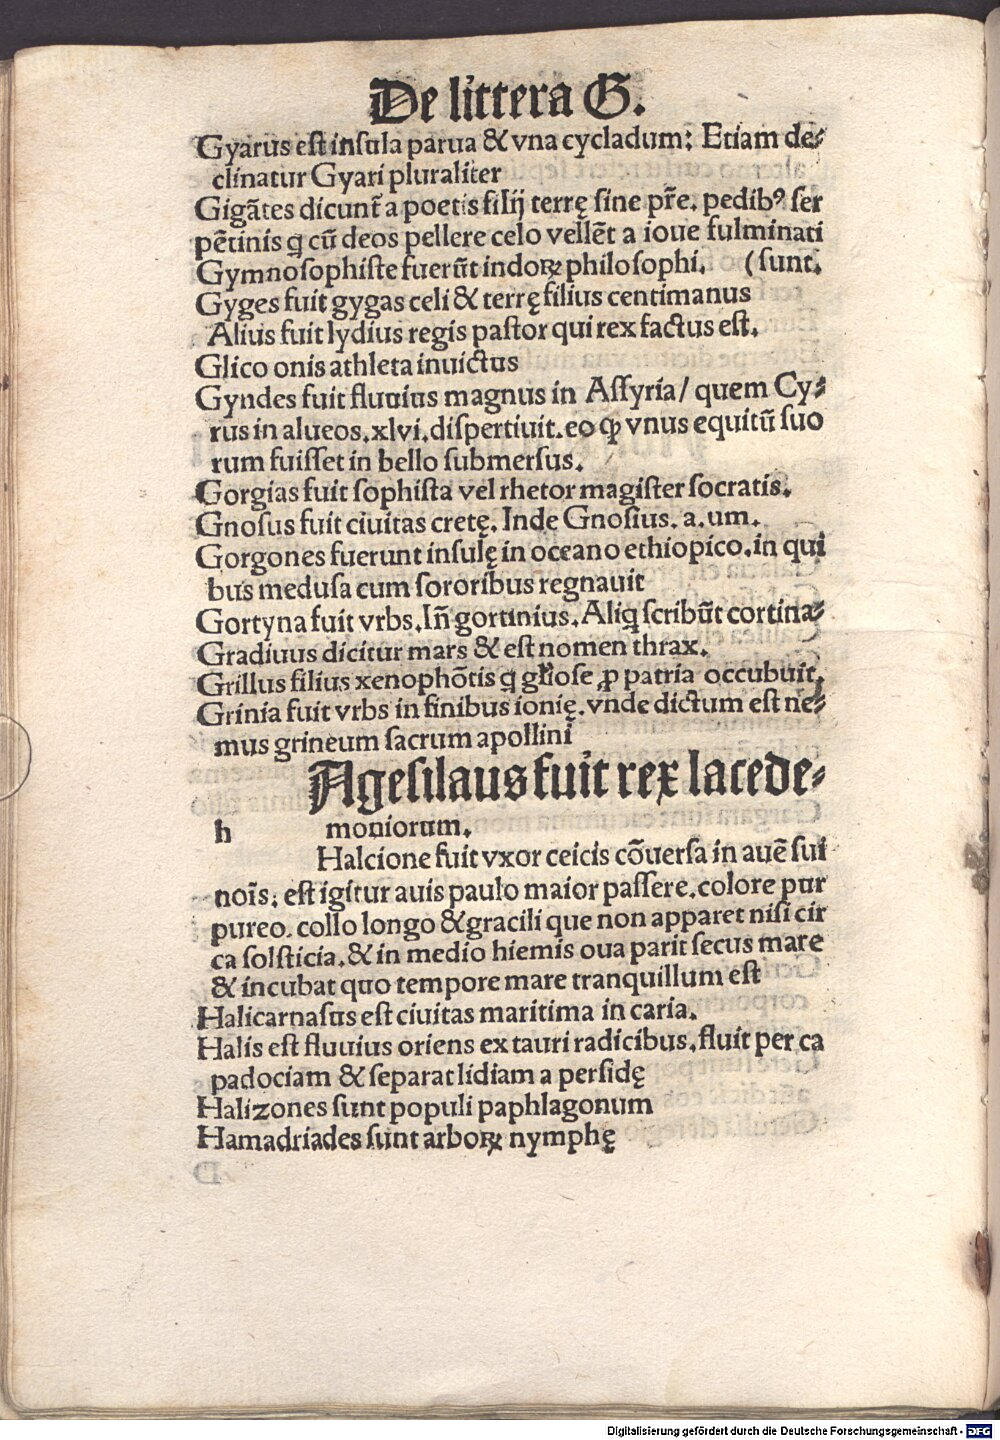 De littera G.
Gyarus eſt inſula parua & vna cycladum: Etiam de⸗
clinatur Gyari pluraliter
Gigãtes dicunt̃ a poetis filij terrę ſine pr̃e. pedibꝰ ſer
pẽtinis q̃ cũ deos pellere celo vellẽt a ioue fulminati
Gymnoſophiſte fuerũt indoꝝ philoſophi. (ſunt.
Gyges fuit gygas celi & terrę filius centimanus
Alius fuit lydius regis paſtor qui rex factus eſt.
Glico onis athleta inuictus
Gyndes fuit fluuius magnus in Aſſyria/ quem Cy⸗
rus in alueos.xlvi.diſpertiuit.eo ꝙ vnus equitũ ſuo
rum fuiſſet in bello ſubmerſus.
Gorgias fuit ſophiſta vel rhetor magiſter ſocratis.
Gnoſus fuit ciuitas cretę. Inde Gnoſius. a. um.
Gorgones fuerunt inſulę in oceano ethiopico.in qui
bus meduſa cum ſororibus regnauit
Gortyna fuit vrbs. Iñ gortinius. Aliq̃ ſcribũt cortina⸗
Gradiuus dicitur mars & eſt nomen thrax.
Grillus filius xenophõtis q̃ gl̃ioſe ꝓ patria occubuit.
Grinia fuit vrbs in finibus ionię. vnde dictum eſt ne⸗
mus grineum ſacrum apollini
Ageſilaus fuit rex lacede⸗
h moniorum.
Halcione fuit vxor ceicis cõuerſa in auẽ ſui
noĩs: eſt igitur auis paulo maior paſſere.colore pur
pureo. collo longo & gracili que non apparet niſi cir
ca ſolſticia. & in medio hiemis oua parit ſecus mare
& incubat quo tempore mare tranquillum eſt
Halicarnaſus eſt ciuitas maritima in caria.
Halis eſt fluuius oriens ex tauri radicibus.fluit per ca
padociam & ſeparat lidiam a perſidę
Halizones ſunt populi paphlagonum
Hamadriades ſunt arboꝝ nymphę
Digitalisierung gefördert durch die Deutsche Forschungsgemeinschaft - DFG